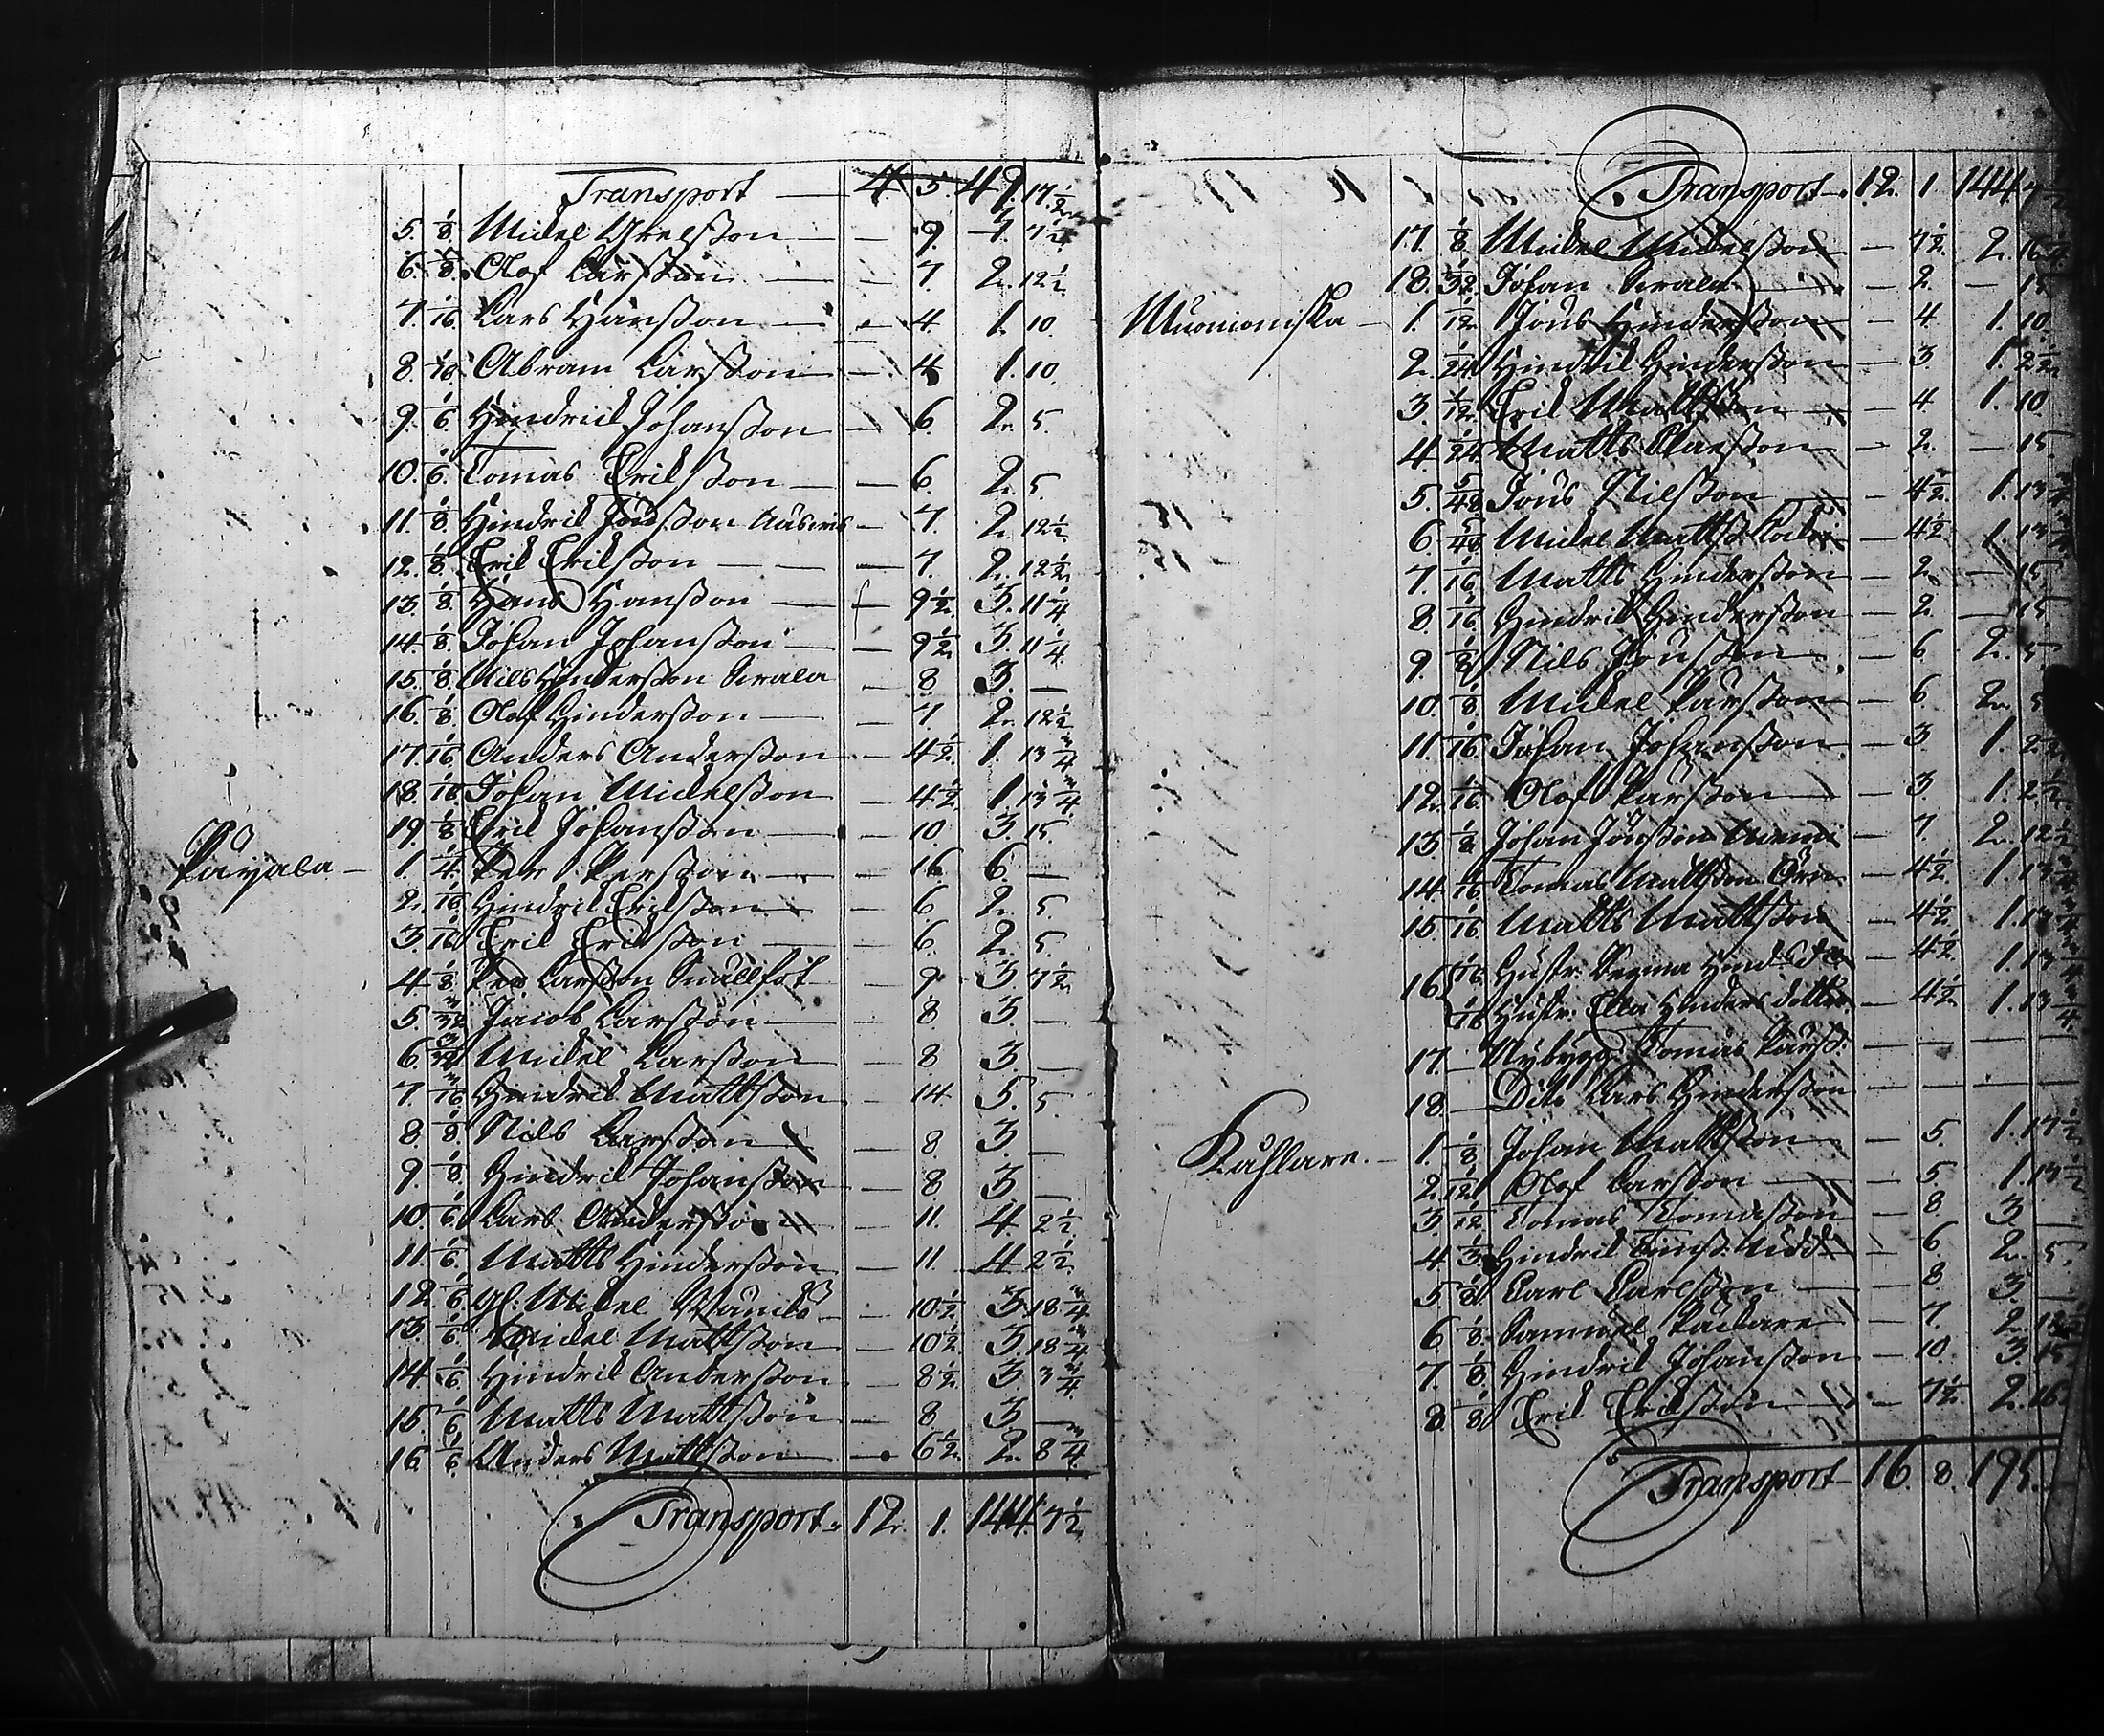 Transport — 4. 5. 49. 17 1/2
5. 1/8 Michel Grelsson — — 9. 3. 7 1/2
6. 1/8 Olof Larsson — — 7. 2. 12 1/2
7. 1/16 Lars Hansson — — 4. 1. 10.
8. 1/16 Abram Larsson — 4 1. 10.
9. 1/6 Hindrich Johansson — 6. 2. 5.
10. 1/6 Tomas Erikson — — 6. 2. 5.
11. 1/8 Hindrik Jönsson — 7. 2. 12 1/2
12. 1/8 Erik Erikson — — 7. 2. 12 1/2
13. 1/8 Hans Hansson — — 9 1/2 3. 11 1/4
14. 1/8 Johan Johansson — — 9 1/2 3. 11 1/4
15. 1/8 Nils Hinderson Servala — 8 3. —
16. 1/8 Olof Hinderson — — 7 2. 12 1/2
17. 1/16 Anders Anderson — 4 1/2 1. 13 3/4
18. 1/16 Johan Michelsson — 4 1/2 1. 13 3/4
19. 1/8 Erik Johansson — — 10. 3. 15.
Pajala — 1. 1/4 Per Person — — 16 6. —
2. 1/16 Hindrik Erikson — — 6. 2. 5.
3. 1/16 Erik Erikson — — 6. 2. 5.
4. 1/8 Per Larsson Snällfot — 9 3. 7 1/2
5. 3/32 Jacob Larsson — — 8 3. —
6. 3/32 Michel Larsson — 8 3. —
7. 3/16 Hindrik Mattsson — 14 5. 5.
8. 1/8 Nils Larsson — 8 3. —
9. 1/8 Hindrik Johansson — 8 3 —
10. 1/6 Lars Anderson — 11. 4. 2 1/2
11. 1/6 Matts Hinderson — 11. 4 2 1/2
12. 1/6 Gl: Michel — 10 1/2 3. 18 3/4
13. 1/6 Michel Mattsson — 10 1/2 3. 18 3/4
14. 1/6 Hindrik Anderson — 8 1/2 3 3 3/4
15. 1/6 Matts Mattsson — 8 3 —
16. 1/6 Anders Mattsson — 6 1/2 2. 8 3/4
Transport — 12. 1. 144. 7 1/2
Transport — 12. 1. 144 7 1/2
17. 1/8 Michel Michelsson — 7 1/2 2. 16 1/4
18. 1/32 Johan Servala — — 2. — 15
Muonioniska — 1. 1/12 Jöns Hinderson — 4 1. 10.
2. 1/24 Hindrik Hinderson — 3. 1. 2 1/2
3. 1/12 Erik Mattsson — 4 1. 10
4. 1/24 Matts Olarsson — 2. — 15.
5. 5/48 Jöns Nilsson — 4 1/2 1. 13 3/4
6. 5/48 Michel Mattss. — 4 1/2 1. 13 3/4
7. 1/16 Matts Hinderson — 2. — 15.
8. 1/16 Hindrik Hinderson — 2. — 15.
9. 1/8 Nils Jönsson — 6 2. 5.
10. 1/8 Michel Larsson — 6 2. 5
11. 1/16 Johan Johansson — 3 1. 2 1/2
12. 1/16 Olof Larsson — 3. 1. 2 1/2
13. 1/8 Johan Jönsson — 7 2. 12 1/2
14. 1/16 Tomas Mattsson — 4 1/2 1. 13 3/4
15. 1/16 Matts Mattsson — 4 1/2 1. 13 3/4
16. 1/16 Hustr: Hindsd — 4 1/2 1. 13 3/4
1/16 Hustr: Ella Hinders dotter — 4 1/2 1. 13 3/4
17. — Nybygg. Tomas Larss: — — — —
18. — Dito Lars Hinderson — — — —
Kåhlare. — 1. 1/8 Johan Mattsson — 5. 1. 17 1/2
2. 1/12 Olof Larsson — — 5. 1. 17 1/2
3. 1/12 Tomas Tomasson — 8 3. —
4. 1/3 Hindrik — 6. 2. 5.
5. 1/8 Carl Carlsson — — 8 3. —
6. 1/8 Sammuel — 7. 2. 12 1/2
7. 1/8 Hindrik Johansson — 10. 3. 15.
8. 1/8 Erik Erikson — 7 1/2 2. 16
Transport — 16. 8. 195.